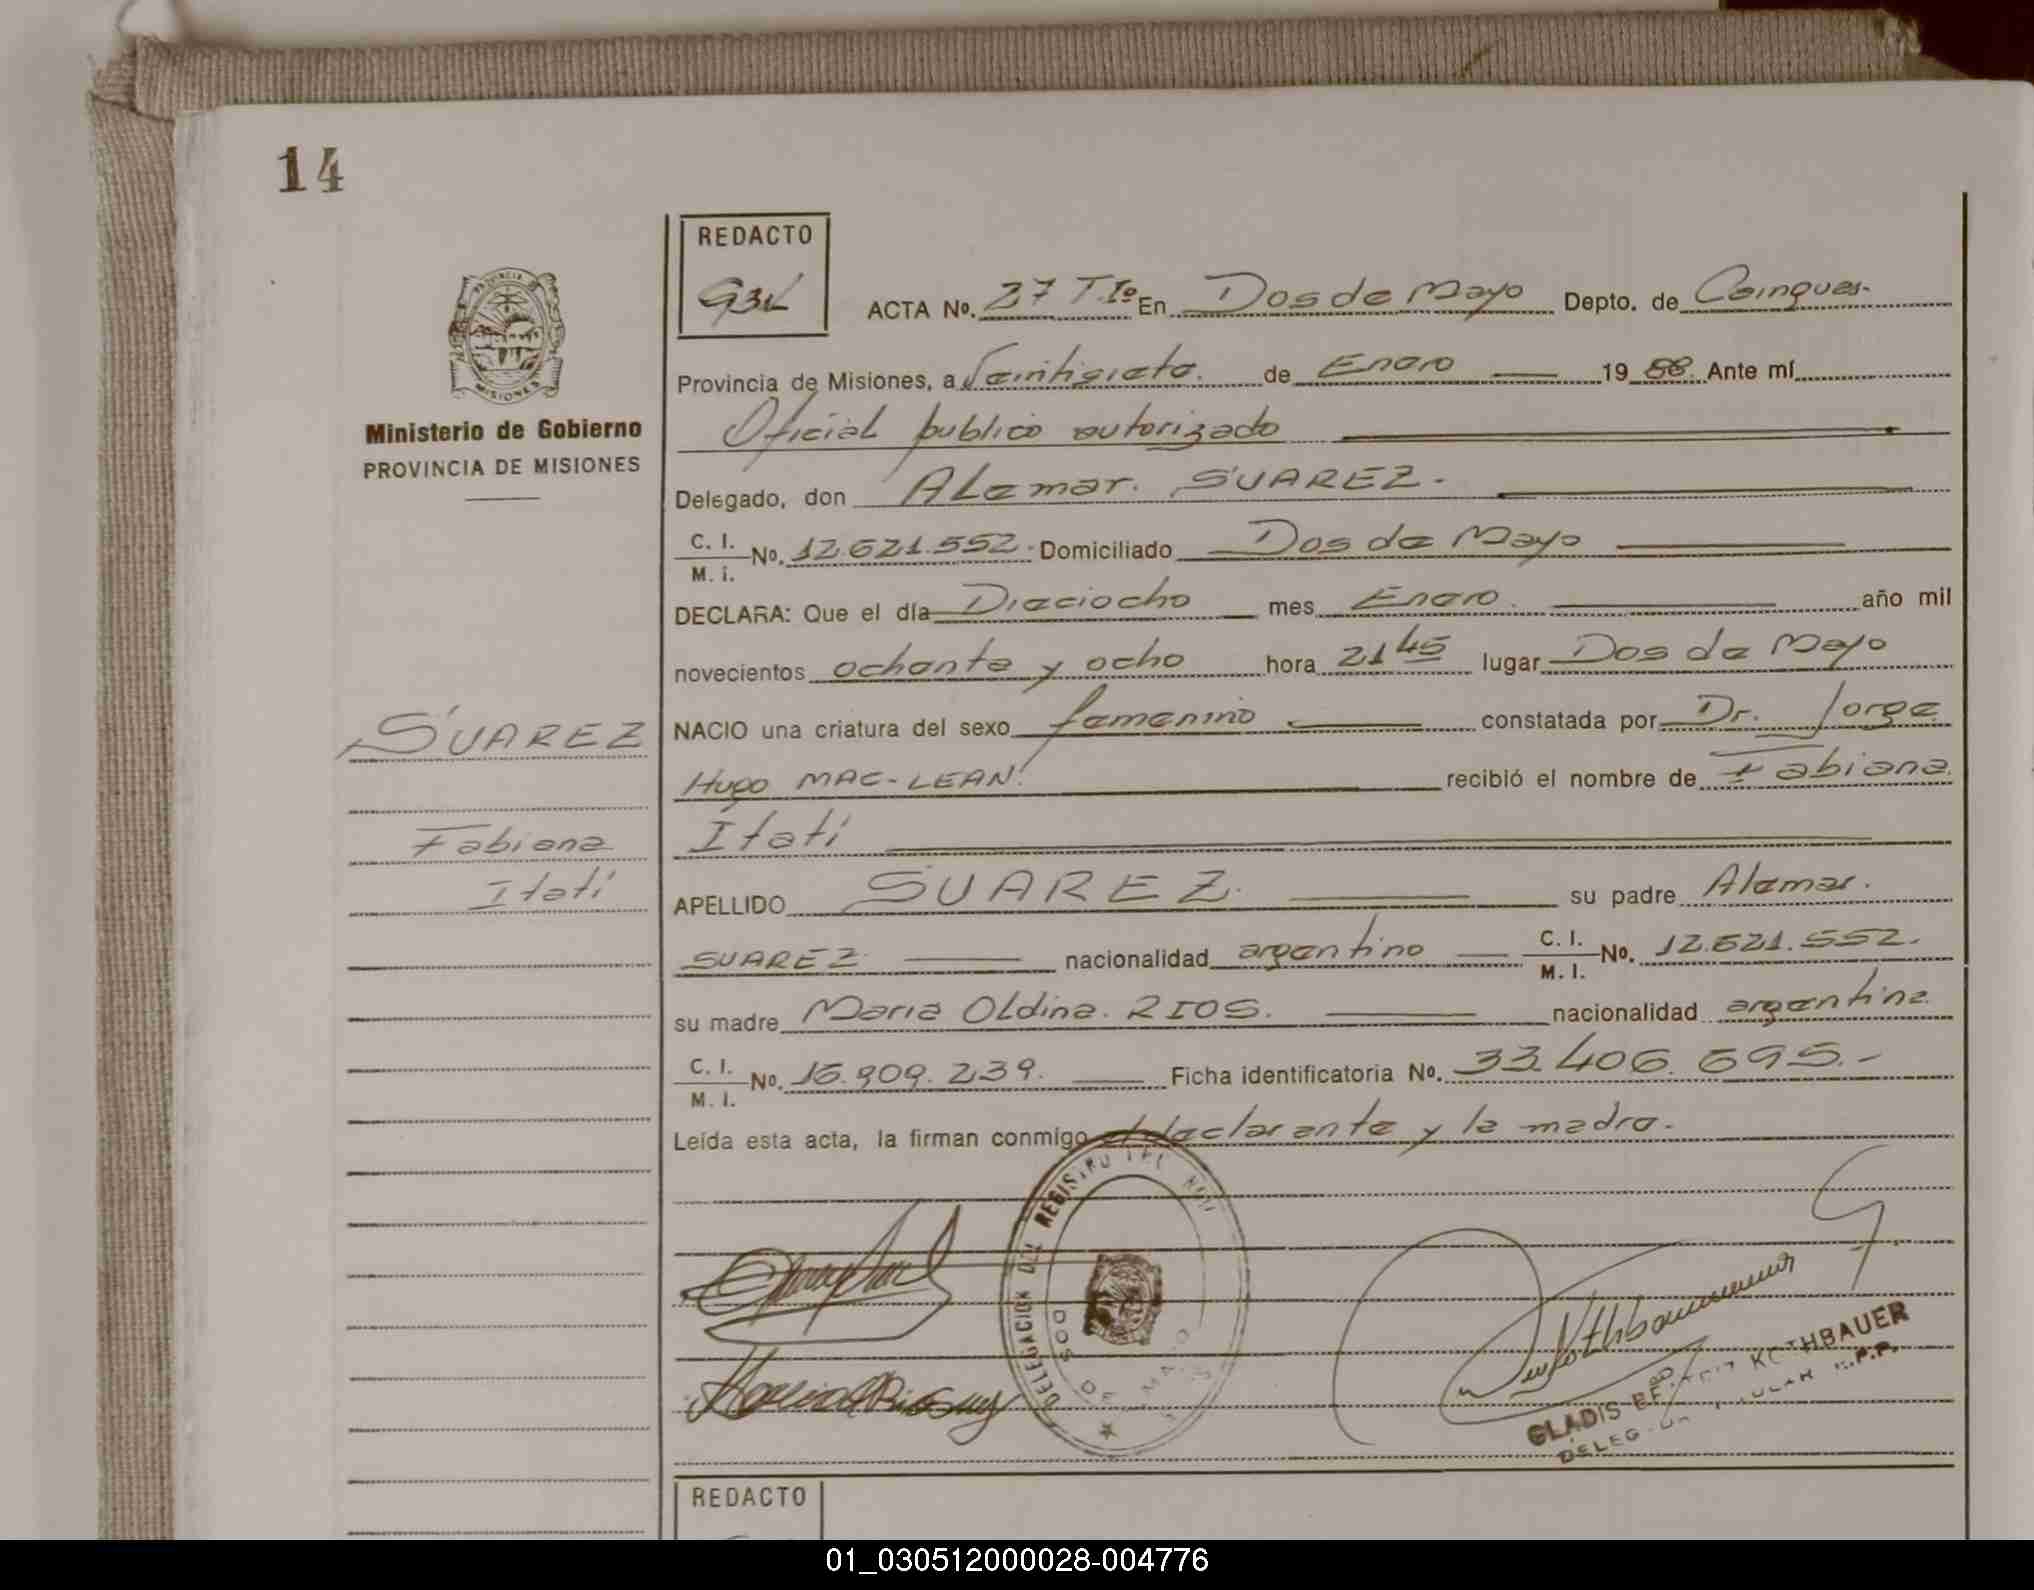 14
REDACTO
PROVINCIA
MISIONES
Ministerio de Gobierno
PROVINCIA DE MISIONES
ACTA No. 27 T.Iº En Dos de Mayo Depto. de Cainguas.
Provincia de Misiones, a Veintisiete. de Enero 19 88. Ante mí
Oficial publico autorizado
Delegado, don Alemar. SUAREZ.
C. I.
M. i. No. 12.621.552. Domiciliado Dos de Mayo
DECLARA: Que el día Dieciocho mes Enero. año mil
novecientos ochenta y ocho hora 21 45 lugar Dos de Mayo
NACIO una criatura del sexo femenino constatada por Dr. Jorge
Hugo MAC-LEAN. recibió el nombre de Fabiana
Itatí
APELLIDO SUAREZ. su padre Alemar.
SUAREZ nacionalidad argentino C. I.
M. I. No. 12.621.552.
su madre Maria Oldina. RIOS. nacionalidad argentina
C. I.
M. I. No. 16.909.239. Ficha identificatoria No. 33.406.695.-
Leída esta acta, la firman conmigo el declarante y la madre.
SUAREZ
Fabiana
Itatí
DELEGACION DEL REGISTRO DEL
DOS DE MAYO
GLADIS
REDACTO
01_030512000028-004776